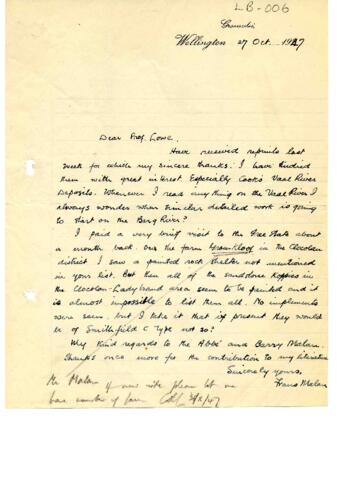 LB-006
Wellington 27 Oct. 1947
Dear Prof. Lowe,
Have received reprints last
week for which my sincere thanks. I have studied
them with great interest Especially Cooke's Vaal River
Deposits. Whenever I read anything on the Vaal River I
always wonder when similar detailed work is going
to start on the Berg River?
I paid a very brief visit to the Free State about
a month back. On the farm in the Clocolan
district I saw a painted rock shelter not mentioned
in your list. But then all of the sandstone Koppies in
the Clocolan-Ladybrand area seem to be painted and it
is almost impossible to list them all. No implements
were seen, but I take it that if present they would
be of Smithfield C Type not so?
My Kind regards to the Abbé and Berry Malan.
Thanks once more for the contribution to my literature
Sincerely yours,
Frans Malan
Mr Malan if new site please let me
have number of farm